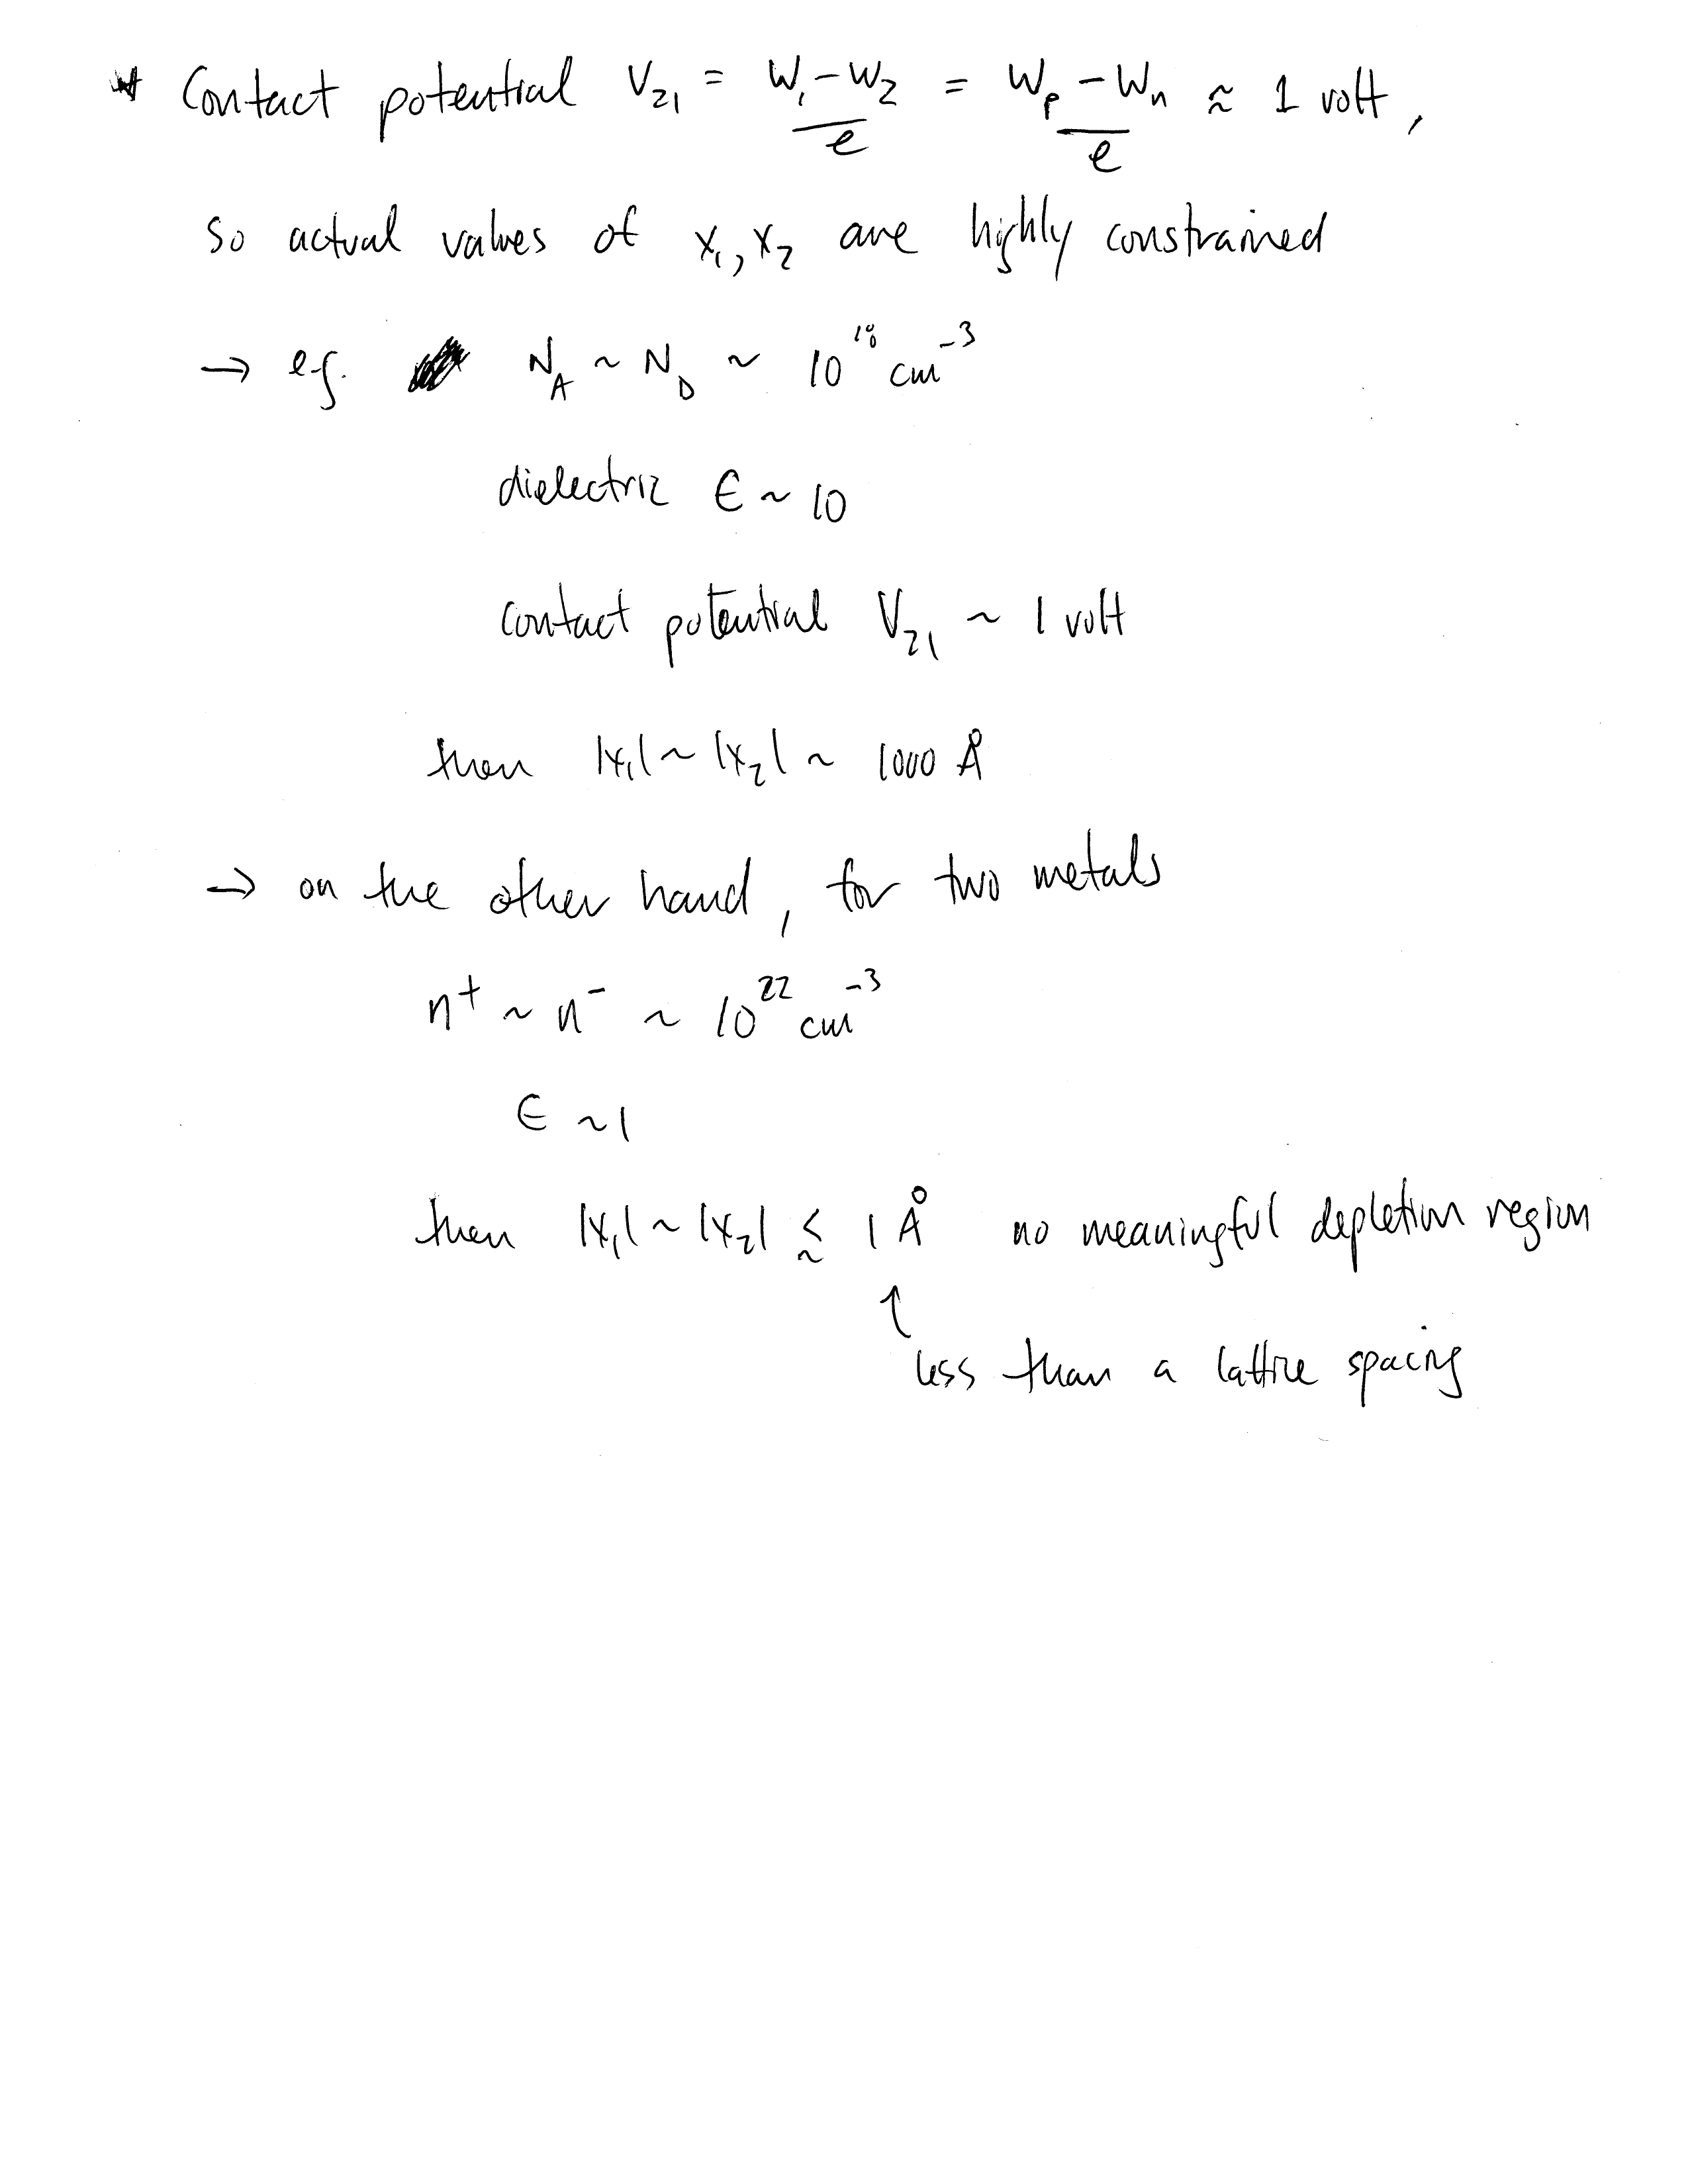 * Contact potential V₂₁ = (W₁-W₂)/e = (Wₚ-Wₙ)/e ≈ 1 volt,
so actual values of x₁, x₂ are highly constrained
→ e.g. N_A ~ N_D ~ 10¹⁸ cm⁻³
dielectric ϵ ~ 10
contact potential V₂₁ ~ 1 volt
then |x₁| ~ |x₂| ~ 1000 Å
→ on the other hand, for two metals
n⁺ ~ n⁻ ~ 10²² cm⁻³
ϵ ~ 1
then |x₁| ~ |x₂| ≲ 1 Å no meaningful depletion region
↑
less than a lattice spacing